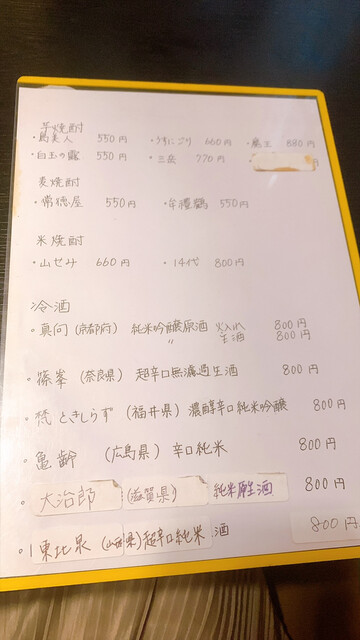 芋焼酎
・島美人 550円 ・うすにごり 660円 ・魔王 880円
・白玉の露 550円 ・三岳 770円 ・ 円
麦焼酎
・常徳屋 550円 ・牟禮鶴 550円
米焼酎
・山せみ 660円 ・14代 800円
冷酒
・真向(京都府) 純米吟醸原酒 火入れ 800円
〃 生酒 800円
・篠峯(奈良県) 超辛口無濾過生酒 800円
・梵 ときしらず(福井県)濃醇辛口純米吟醸 800円
・亀齢 (広島県) 辛口純米 800円
・大治郎 (滋賀県) 純米生酒 800円
・東北泉(山形県)超辛口純米酒 800円